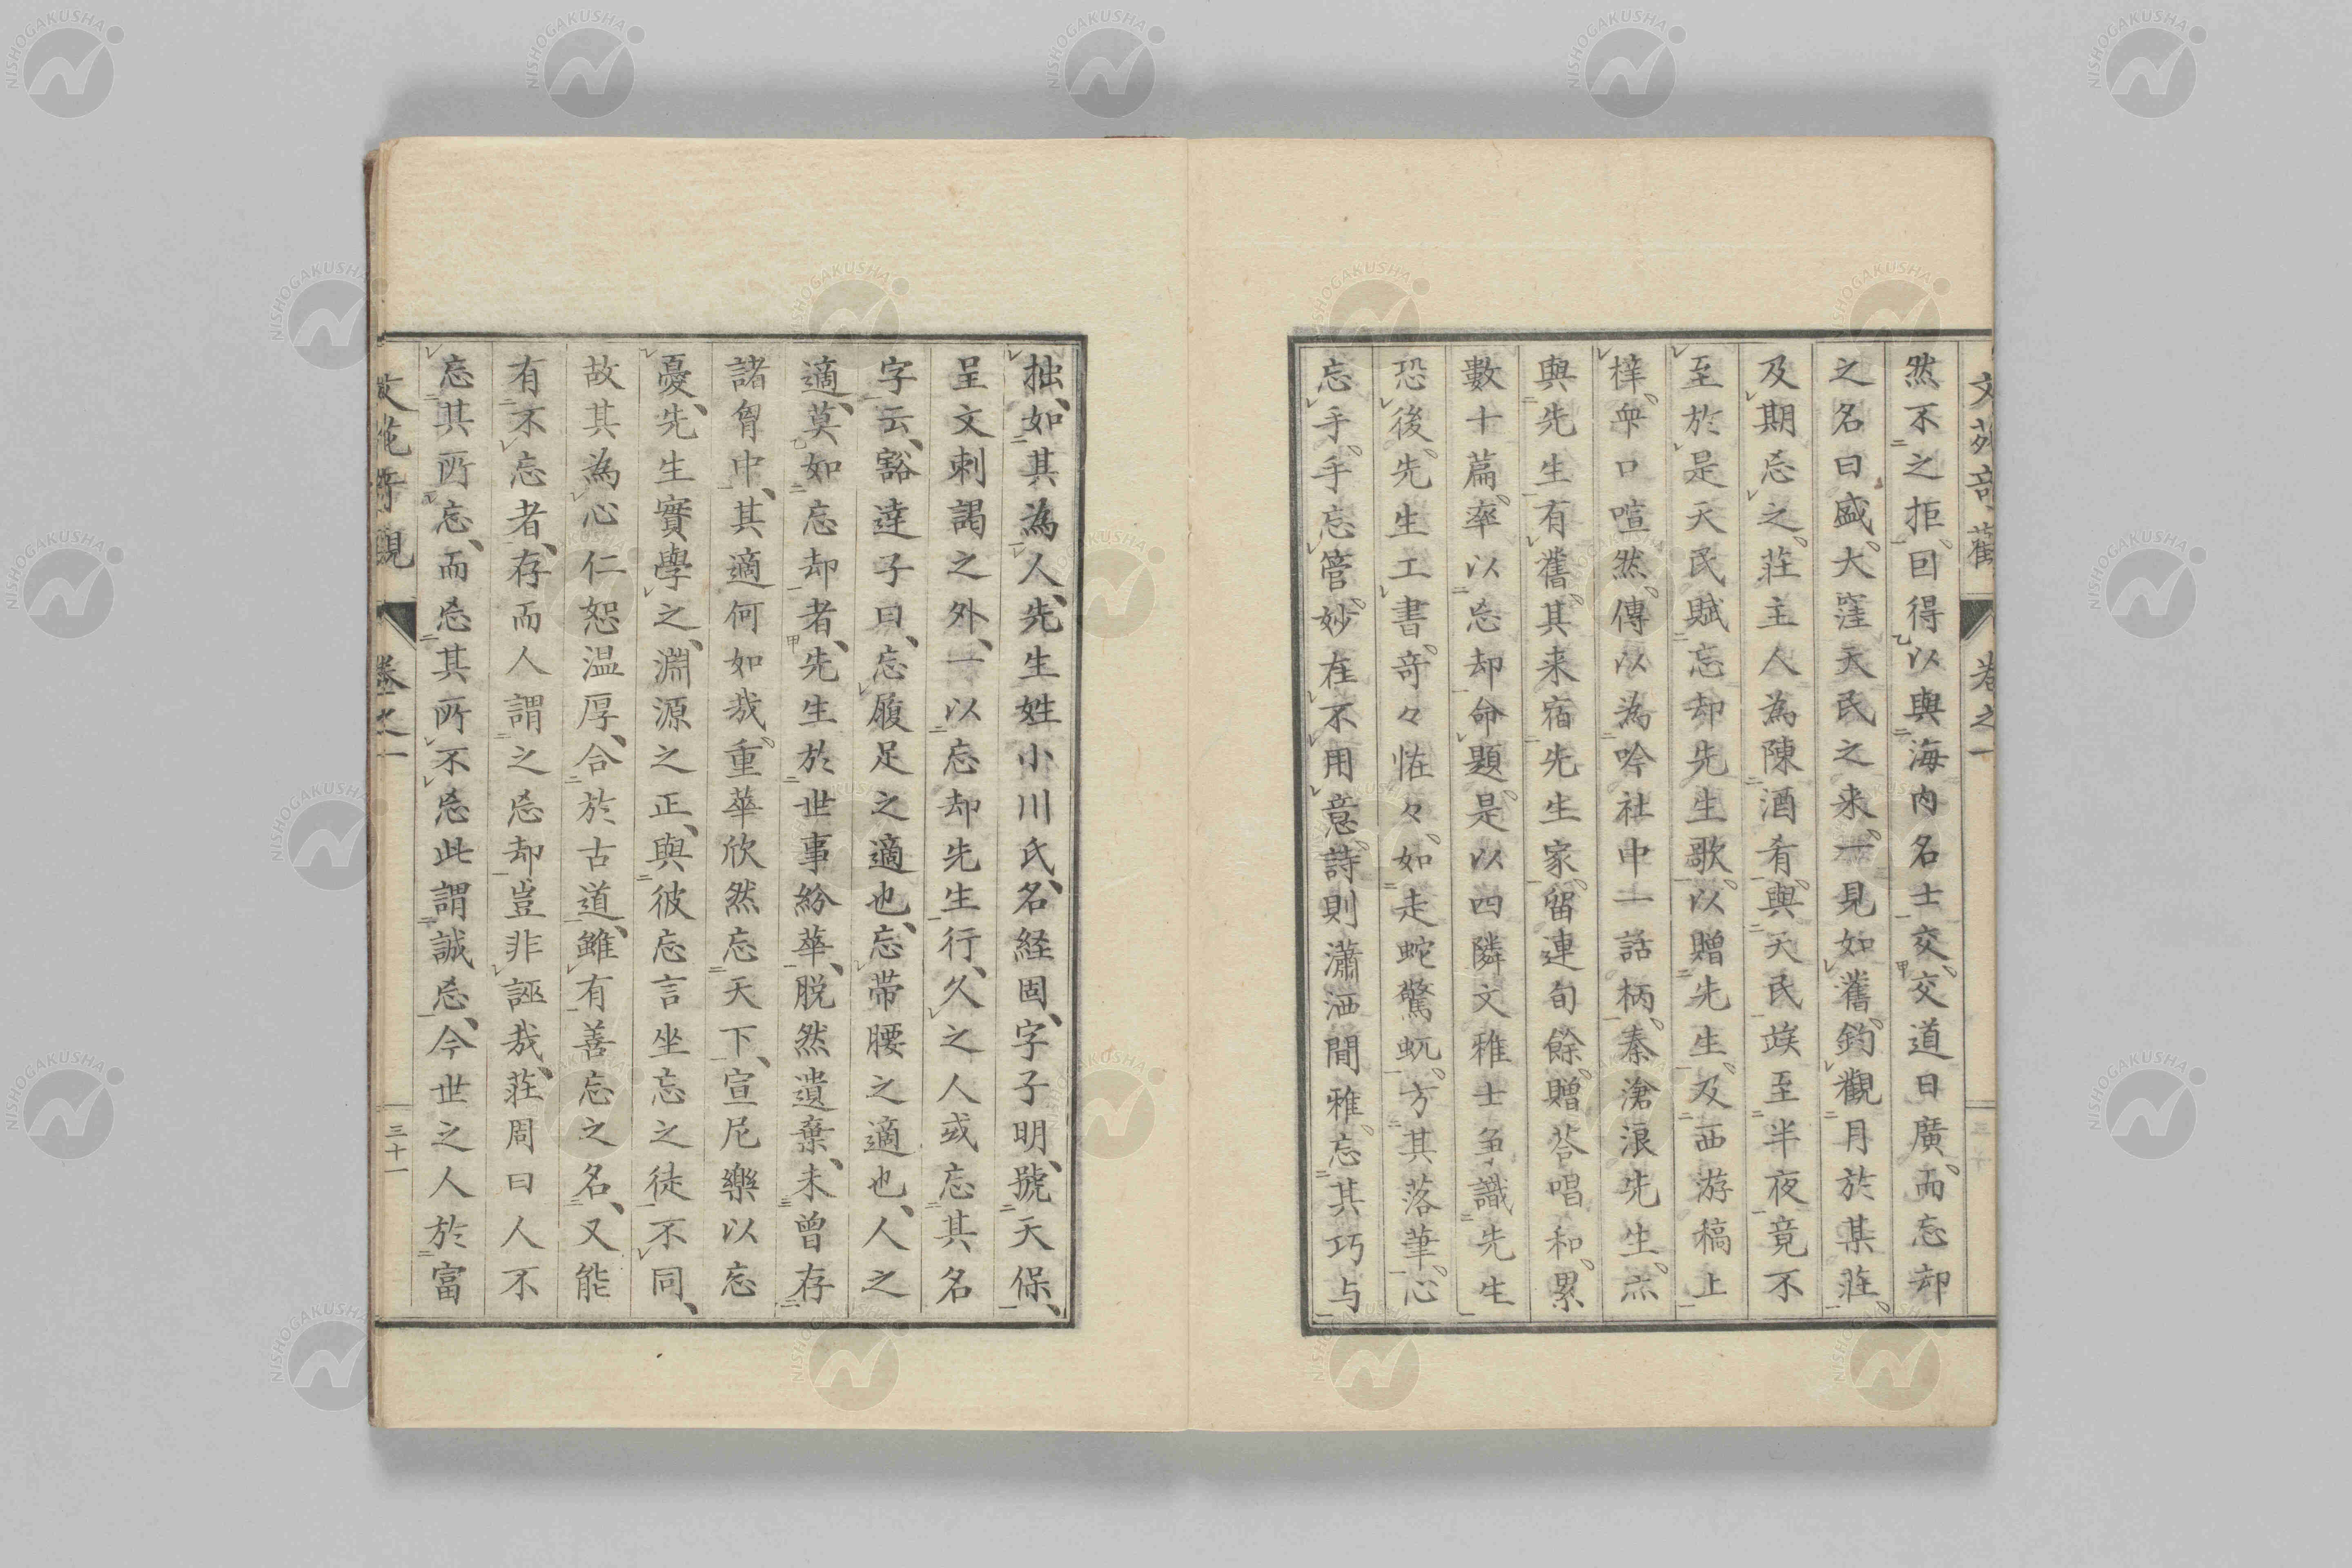 文苑奇觀 卷之一 三十
然不之拒回得以與海内名士交交道日廣而忘却
之名曰盛大窪天民之来一見如舊釣觀月於某莊
及期忘之莊主人為陳酒肴與天民竢至半夜竟不
至於是天民賦忘却先生歌以贈先生及西游稿上
梓卆口喧然傳以為吟社中一話柄秦滄浪先生亦
與先生有舊其来宿先生家留連旬餘贈荅唱和累
數十篇率以忘却命題是以四隣文雅士争識先生
恐後先生工書奇々恠々如走蛇驚蚖方其落筆心
忘手手忘管妙在不用意詩則瀟洒閒雅忘其巧与
拙如其為人先生姓小川氏名経固字子明號天保
呈文刺謁之外一以忘却先生行久之人或忘其名
字云豁達子曰忘履足之適也忘帯腰之適也人之
適莫如忘却者先生於世事紛華脱然遺棄未曾存
諸胷中其適何如哉重華欣然忘天下宣尼樂以忘
憂先生實學之淵源之正與彼忘言坐忘之徒不同
故其為心仁恕温厚合於古道雖有善忘之名又能
有不忘者存而人謂之忘却豈非誣哉莊周曰人不
忘其所忘而忘其所不忘此謂誠忘今世之人於富
文苑奇觀 卷之一 三十一
NISHOGAKUSHA